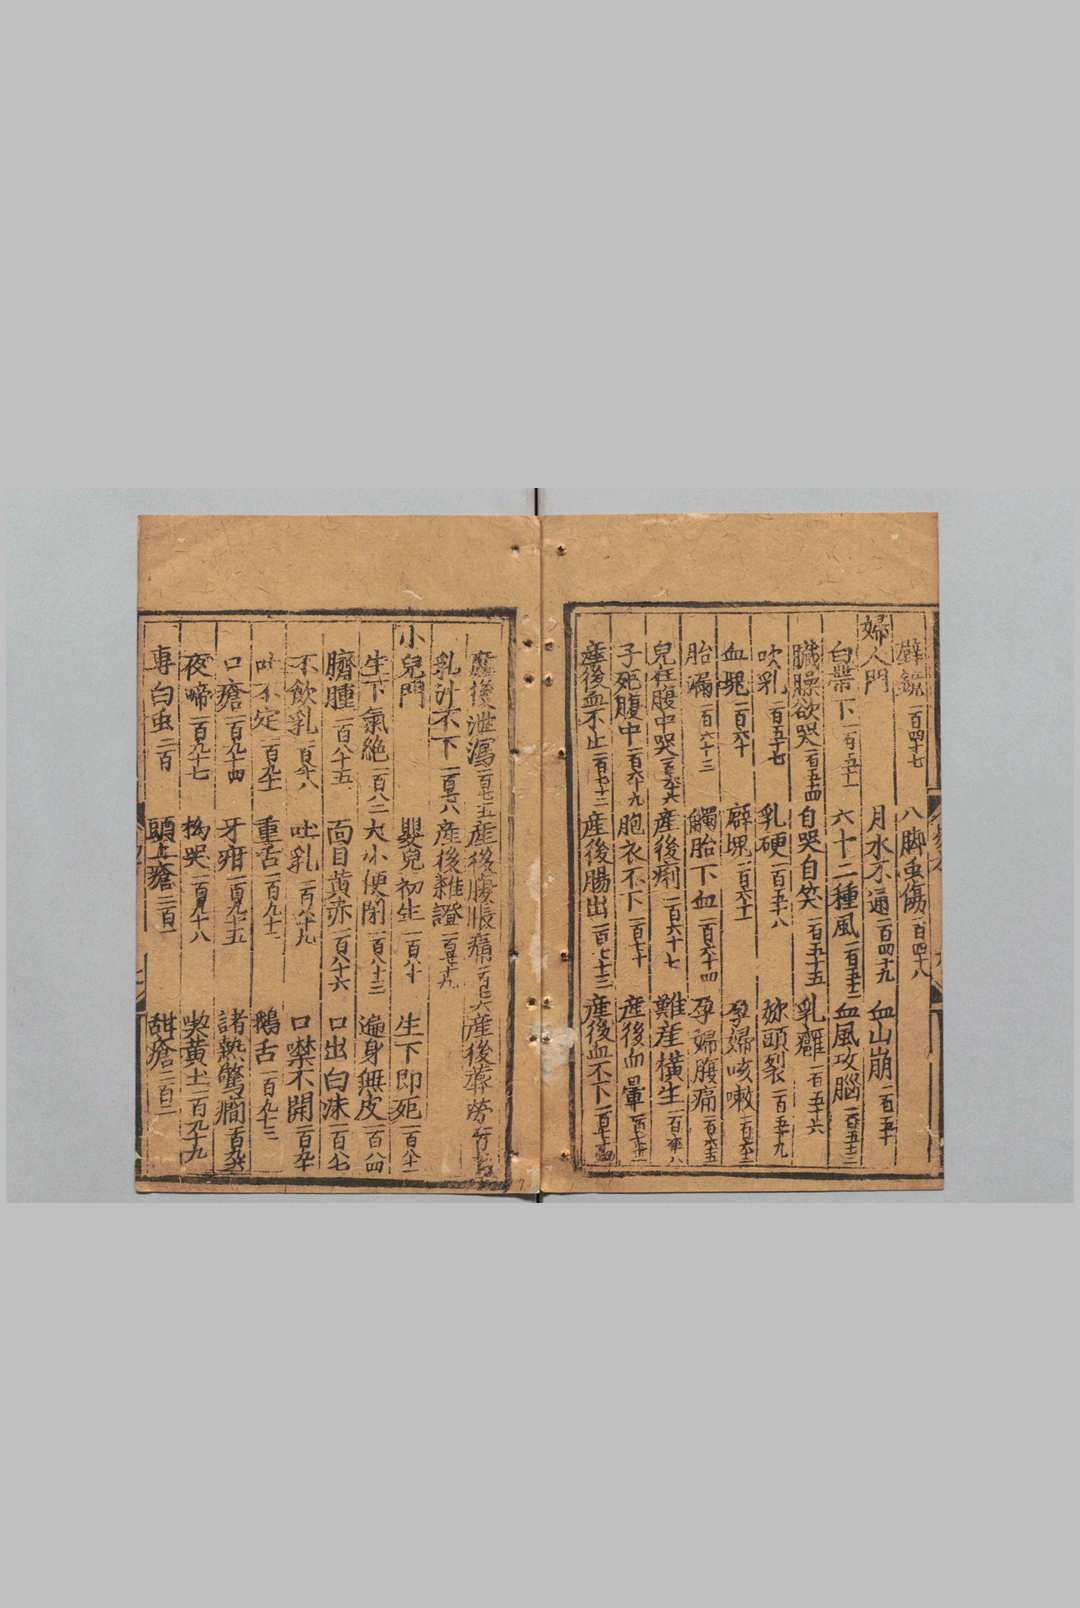 壁鏡一百四十七 八脚虫傷一百四十八
婦人門 月水不通一百四十九 血山崩一百五十
白帶下一百五十一 六十二種風一百五十二 血風攻腦一百五十三
臟臊欲哭一百五十四 自哭自笑一百五十五 乳癰一百五十六
吹乳一百五十七 乳硬一百五十八 妳頭裂一百五十九
血塊一百六十 癖塊一百六十一 孕婦咳嗽一百六十二
胎漏一百六十三 觸胎下血一百六十四 孕婦腹痛一百六十五
兒在腹中哭一百六十六 產後痢一百六十七 難產橫生一百六十八
子死腹中一百六十九 胞衣不下一百七十 產後血暈
產後血不止一百七十二 產後腸出一百七十三 產後血不下一百七十四
產後泄瀉一百七十五 產後腹脹痛一百七十六 產後
乳汁不下一百七十八 產後雜證一百七十九
小兒門 嬰兒初生一百八十 生下即死一百八十一
生下氣絶一百八十二 大小便閉一百八十三 遍身無皮一百八十四
臍腫一百八十五 面目黃赤一百八十六 口出白沫一百八十七
不飲乳一百八十八 吐乳一百八十九 口噤不開一百九十
吐不定一百九十一 重舌一百九十二 鵝舌一百九十三
口瘡一百九十四 牙疳一百九十五 諸熱驚癇一百九十六
夜啼一百九十七 拗哭一百九十八 喫黃土一百九十九
專白虫二百 頭上瘡二百一 甜瘡二百二